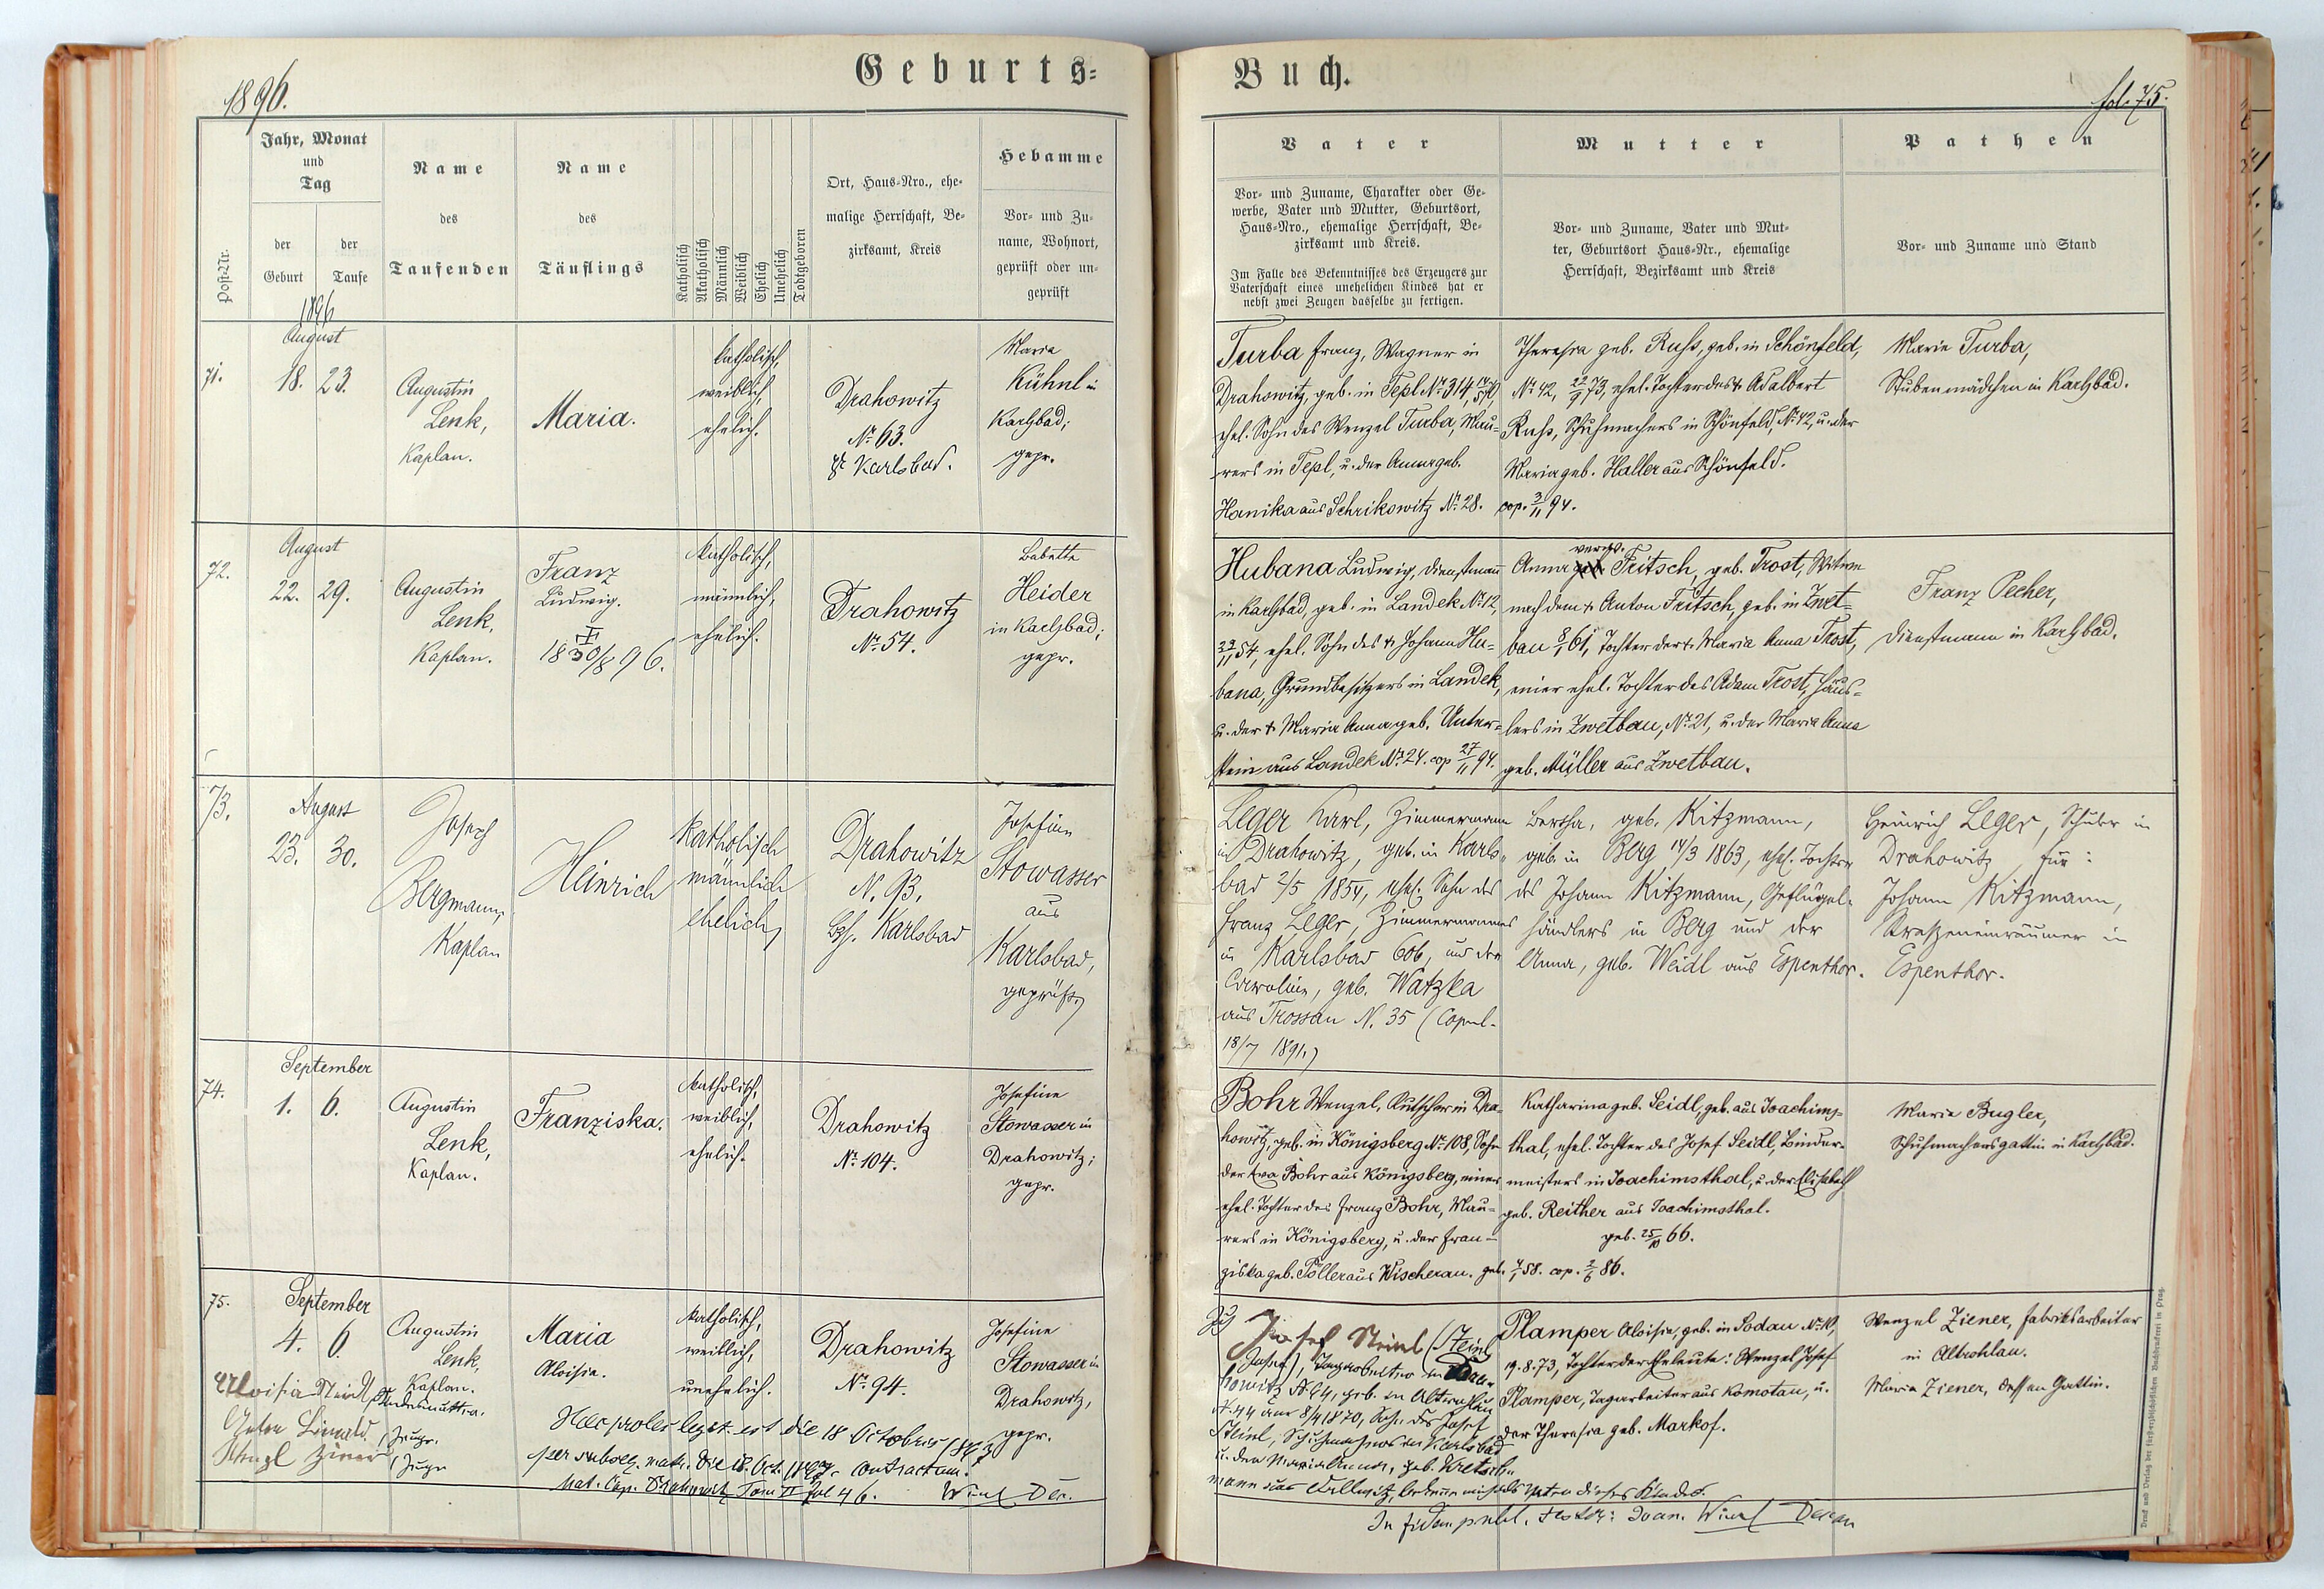 1896.
Geburts=
Jahr, Monat
und
Tag
Post-Nr.
der
Geburt
der
Taufe
Name
des
Taufenden
Name
des
Täuflings
Katholisch
Akatholisch
Männlich
Weiblich
Ehelich
Unehelich
Todtgeboren
Ort, Haus-Nro., ehe-
malige Herrschaft, Be-
zirksamt, Kreis
Hebamme
Vor- und Zu-
name, Wohnort,
geprüft oder un-
geprüft
1896
August
71.
18. 23.
Augustin
Lenk,
Kaplan.
Maria.
katholisch,
weiblich,
ehelich.
Drahowitz
Nr. 63.
Karlsbad.
Maria
Kühnl in
Karlsbad;
gepr.
August
72.
22. 29.
Augustin
Lenk,
Kaplan.
Franz
Ludwig.
katholisch,
männlich,
ehelich.
Drahowitz
Nr. 54.
Babette
Heider
in Karlsbad;
gepr.
73.
August
23. 30.
Joseph
Bergmann,
Kaplan
Heinrich
katholisch
männlich
ehelich
Drahowitz
N. 93.
Bzh. Karlsbad
Josefine
Stowasser
aus
Karlsbad,
geprüft
September
74.
1. 6.
Augustin
Lenk,
Kaplan.
Franziska.
katholisch,
weiblich,
ehelich.
Drahowitz
Nr. 104.
Josefine
Stowasser in
Drahowitz;
gepr.
75.
September
4. 6.
Augustin
Lenk,
Kaplan.
Maria
Aloisia.
katholisch,
weiblich,
unehelich.
Drahowitz
Nr. 94.
Josefine
Stowasser in
Drahowitz,
gepr.
Haec proles legit. est die 18 Octobris 1897
per subseq. matr. die 18. Oct. 1897 contractum.
Mat. Cop. Drahowitz Tom II fol 46.
Buch.
fol. 75.
Vater
Vor- und Zuname, Charakter oder Ge-
werbe, Vater und Mutter, Geburtsort,
Haus-Nro., ehemalige Herrschaft, Be-
zirksamt und Kreis.
Im Falle des Bekenntnisses des Erzeugers zur
Vaterschaft eines unehelichen Kindes hat er
nebst zwei Zeugen dasselbe zu fertigen.
Mutter
Vor- und Zuname, Vater und Mut-
ter, Geburtsort Haus-Nr., ehemalige
Herrschaft, Bezirksamt und Kreis
Pathen
Vor- und Zuname und Stand
Turba Franz, Wagner in
Drahowitz, geb. in Tepl Nr. 314,
ehel. Sohn des Wenzel Turba, Mau-
rers in Tepl, u. der Anna geb.
Hanika aus Schrikowitz Nr. 28.
Theresia geb. Russ, geb. in Schönfeld,
Nr. 42, 22/9 73, ehel. Tochter des + Adalbert
Russ, Schuhmachers in Schönfeld, Nr. 42, u. der
Maria geb. Haller aus Schönfeld.
cop. 3/11 94.
Marie Turba,
Stubenmädchen in Karlsbad.
Hubana Ludwig, Dienstmann
in Karlsbad, geb. in Landek Nr. 12,
54, ehel. Sohn des + Johann Hu-
bana, Grundbesitzers in Landek,
u. der + Maria Anna geb. Unter-
stein aus Landek Nr. 24. cop 27/11 94.
verw.
Anna geb. Fritsch, geb. Trost, Witwe
nach dem + Anton Fritsch, geb. in Zwet-
bau 8/1 61, Tochter der + Maria Anna Trost,
einer ehel. Tochter des Adam Trost, Häus-
lers in Zwetbau, Nr. 21, u. der Maria Anna
geb. Müller aus Zwetbau.
Franz Pecher,
Dienstmann in Karlsbad.
Leger Karl, Zimmermann
in Drahowitz, geb. in Karls-
bad 2/5 1854, ehel. Sohn des
Franz Leger, Zimmermannes
in Karlsbad 606, und der
Caroline, geb. Watzka
aus Trossau N. 35 (Copul.
18/7 1891.)
Bertha, geb. Kitzmann,
geb. in Berg 14/3 1863, ehel. Tochter
des Johann Kitzmann, Geflügel-
händlers in Berg und der
Anna, geb. Weidl aus Espenthor.
Heinrich Leger, Schüler in
Drahowitz, für:
Johann Kitzmann,
Straßeneinräumer in
Espenthor.
Bohr Wenzel, Kutscher in Dra-
howitz, geb. in Königsberg Nr. 108, Sohn
der Eva Bohr aus Königsberg, einer
ehel. Tochter des Franz Bohr, Mau-
rers in Königsberg, u. der Fran-
ziska geb. Töller aus Wischerau. geb. 4/1 58. cop. 2/6 86.
Katharina geb. Seidl, geb. aus Joachims-
thal, ehel. Tochter des Josef Seidl, Binder-
meisters in Joachimsthal, u. der Elisabeth
geb. Reither aus Joachimsthal.
geb. 25/10 66.
Marie Bugler,
Schuhmachersgattin in Karlsbad.
Plamper Aloisia, geb. in Sodau Nr. 10,
19.8.73, Tochter der Eheleute: Wenzel Josef
Plamper, Tagarbeiter aus Komotau, u.
der Theresia geb. Markof.
Wenzel Ziener, Fabriksarbeiter
in Altrohlau.
Maria Ziener, dessen Gattin.